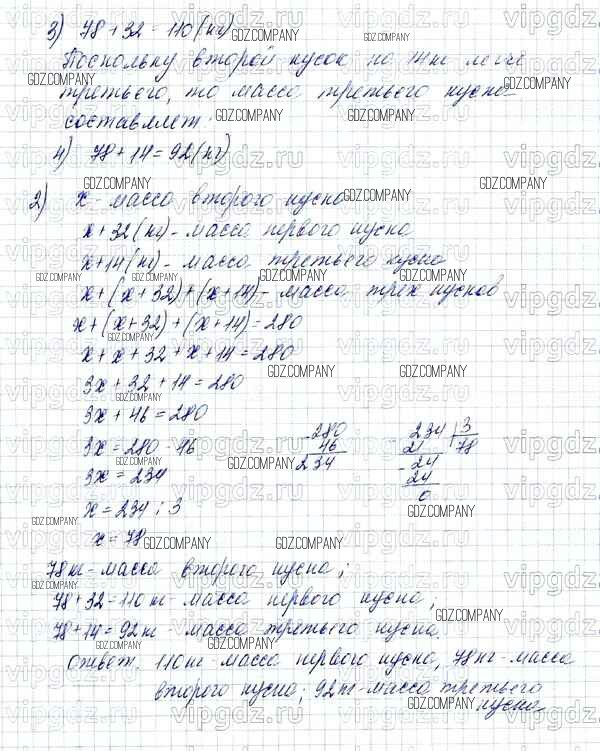 3) 78 + 32 = 110 (кг)
Поскольку второй кусок на 14 кг легче
третьего, то масса третьего куска
составляет:
4) 78 + 14 = 92 (кг)
2) x - масса второго куска
x + 32 (кг) - масса первого куска
x + 14 (кг) - масса третьего куска
x + (x + 32) + (x + 14) - масса трех кусков
x + (x + 32) + (x + 14) = 280
x + x + 32 + x + 14 = 280
3x + 32 + 14 = 280
3x + 46 = 280
3x = 280 - 46
3x = 234
x = 234 : 3
x = 78
- 280
46
234
- 234 | 3
21 78
- 24
24
0
78 кг - масса второго куска;
78 + 32 = 110 кг - масса первого куска;
78 + 14 = 92 кг - масса третьего куска.
Ответ. 110 кг - масса первого куска, 78 кг - масса
второго куска; 92 кг - масса третьего
куска.
GDZ.COMPANY
vipgdz.ru